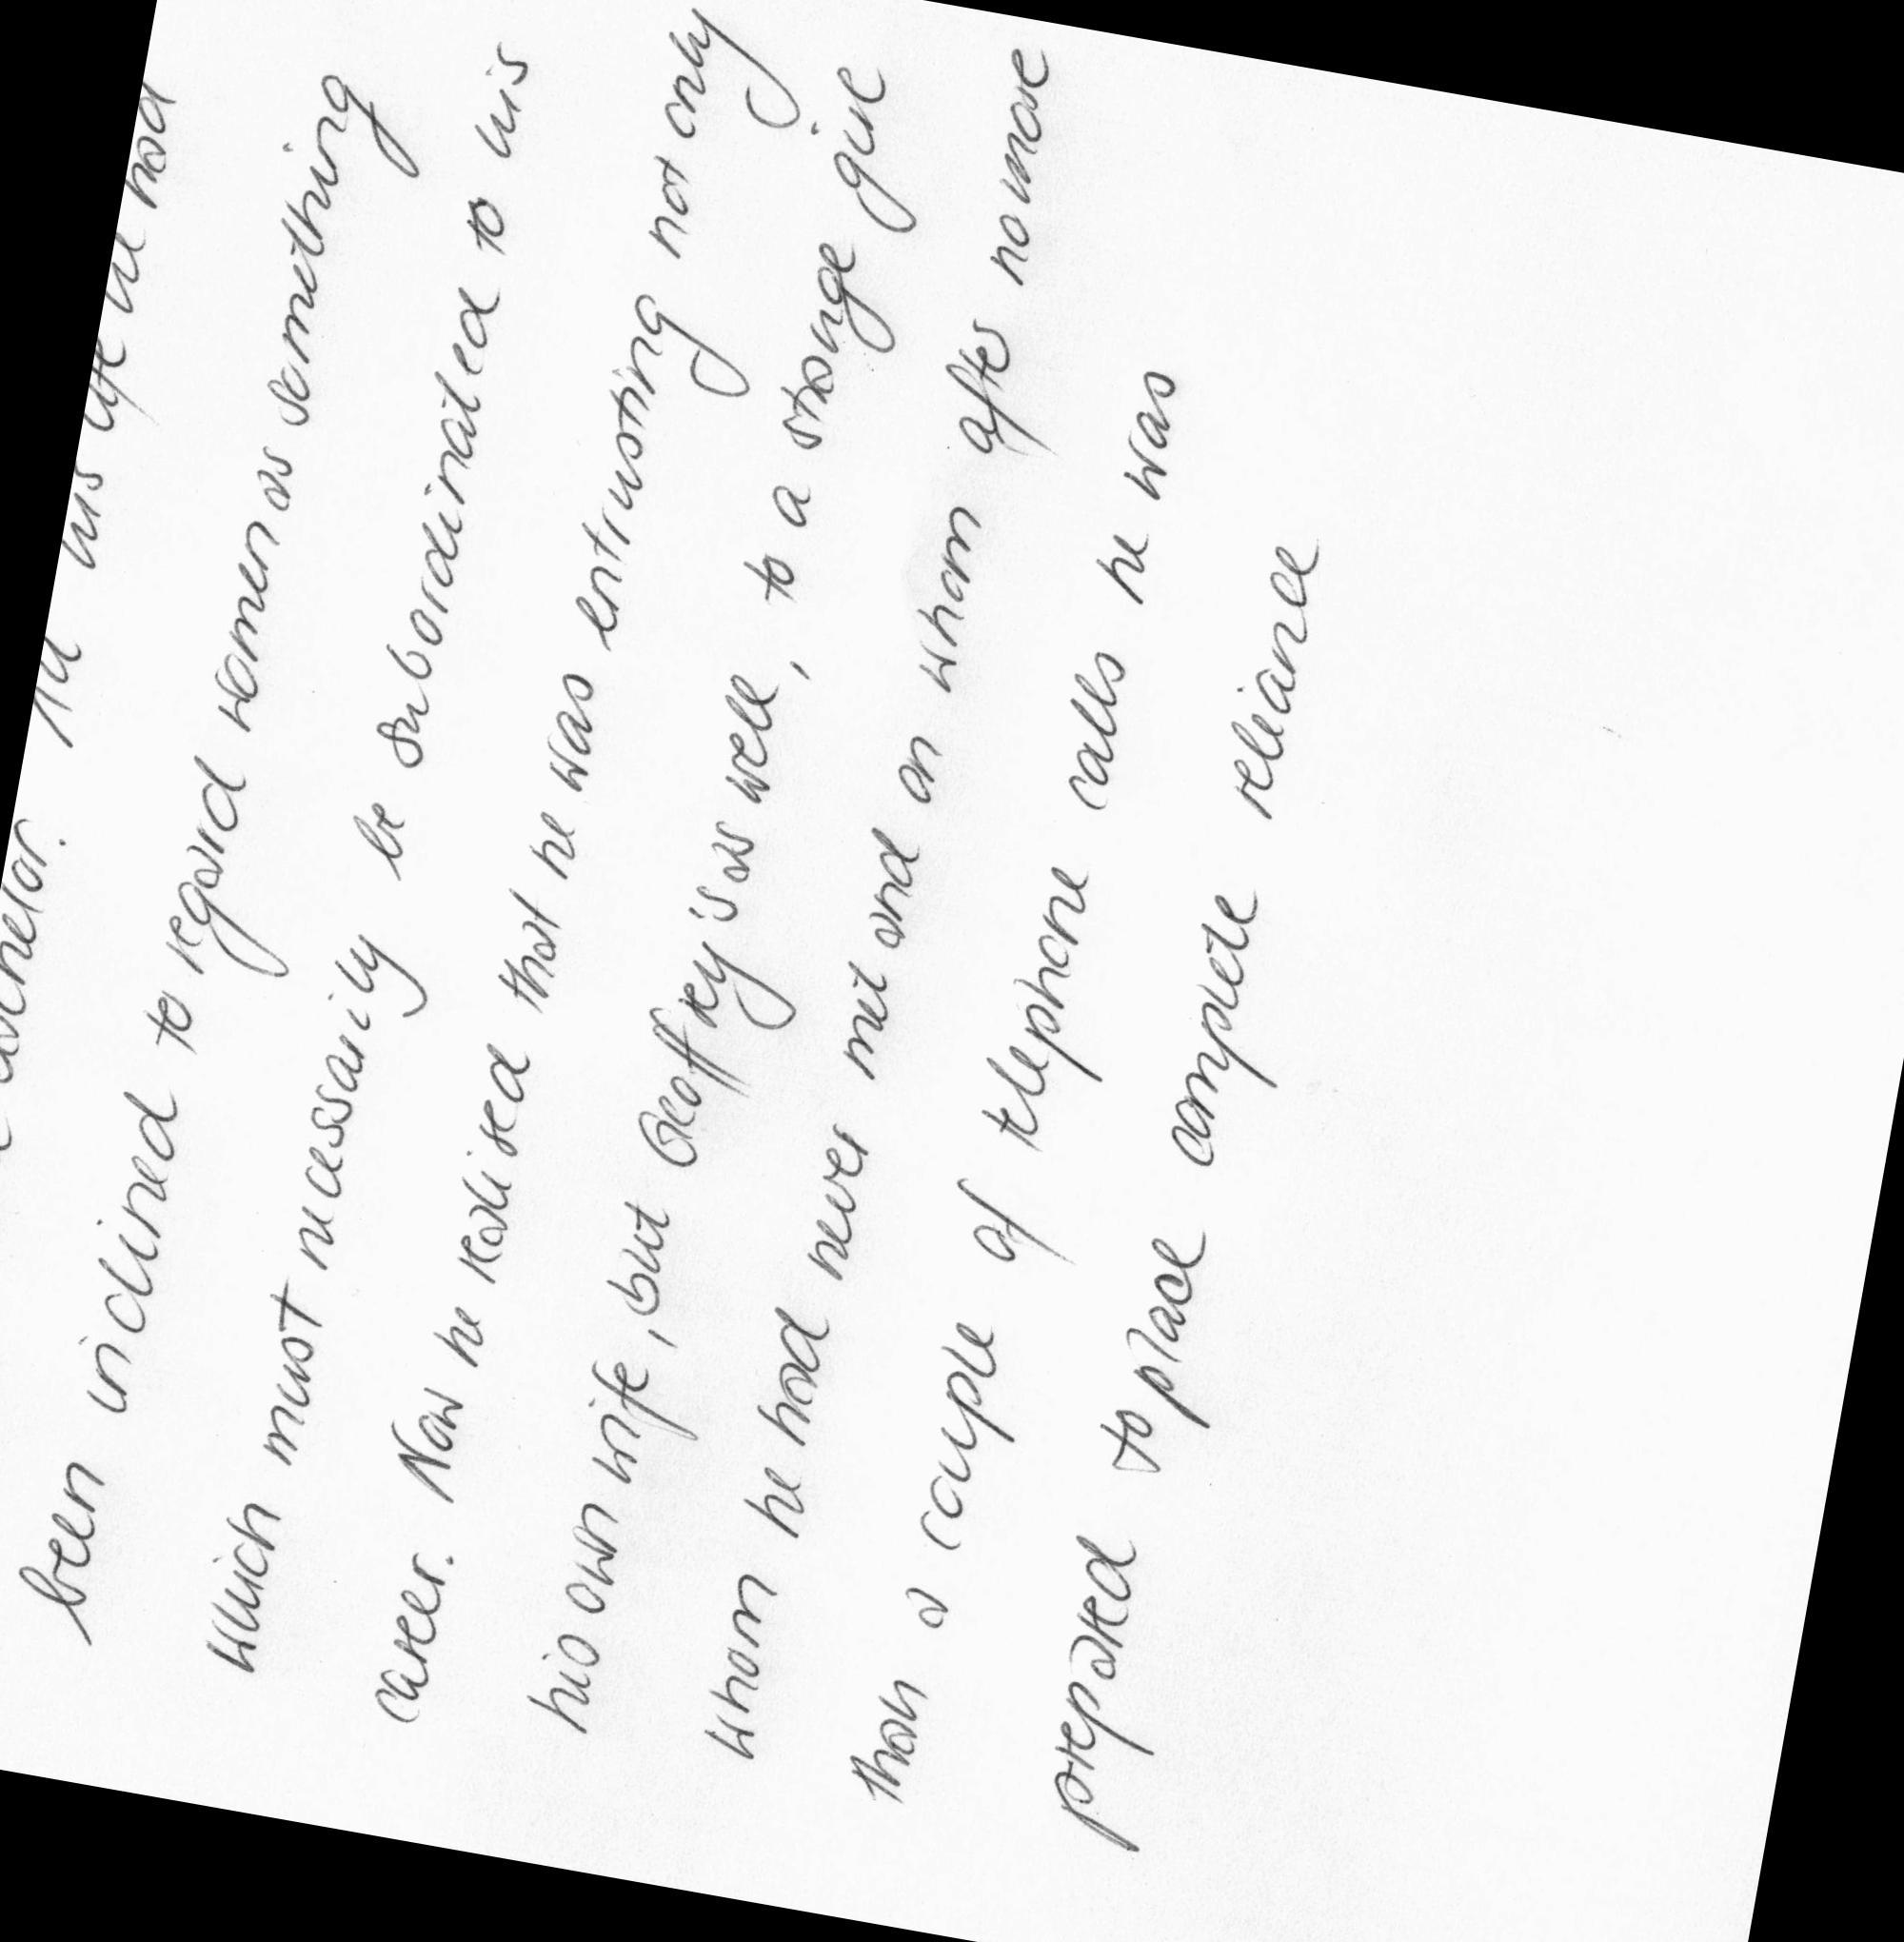 bachelor. All his life he had
been inclined to regard women as something
which must necessarily be subordinated to his
career. Now he realised that he was entrusting not only
his own wife, but Geoffrey's as well, to a strange girl
whom he had never met and on whom after no more
than a couple of telephone calls he was
prepared to place complete reliance